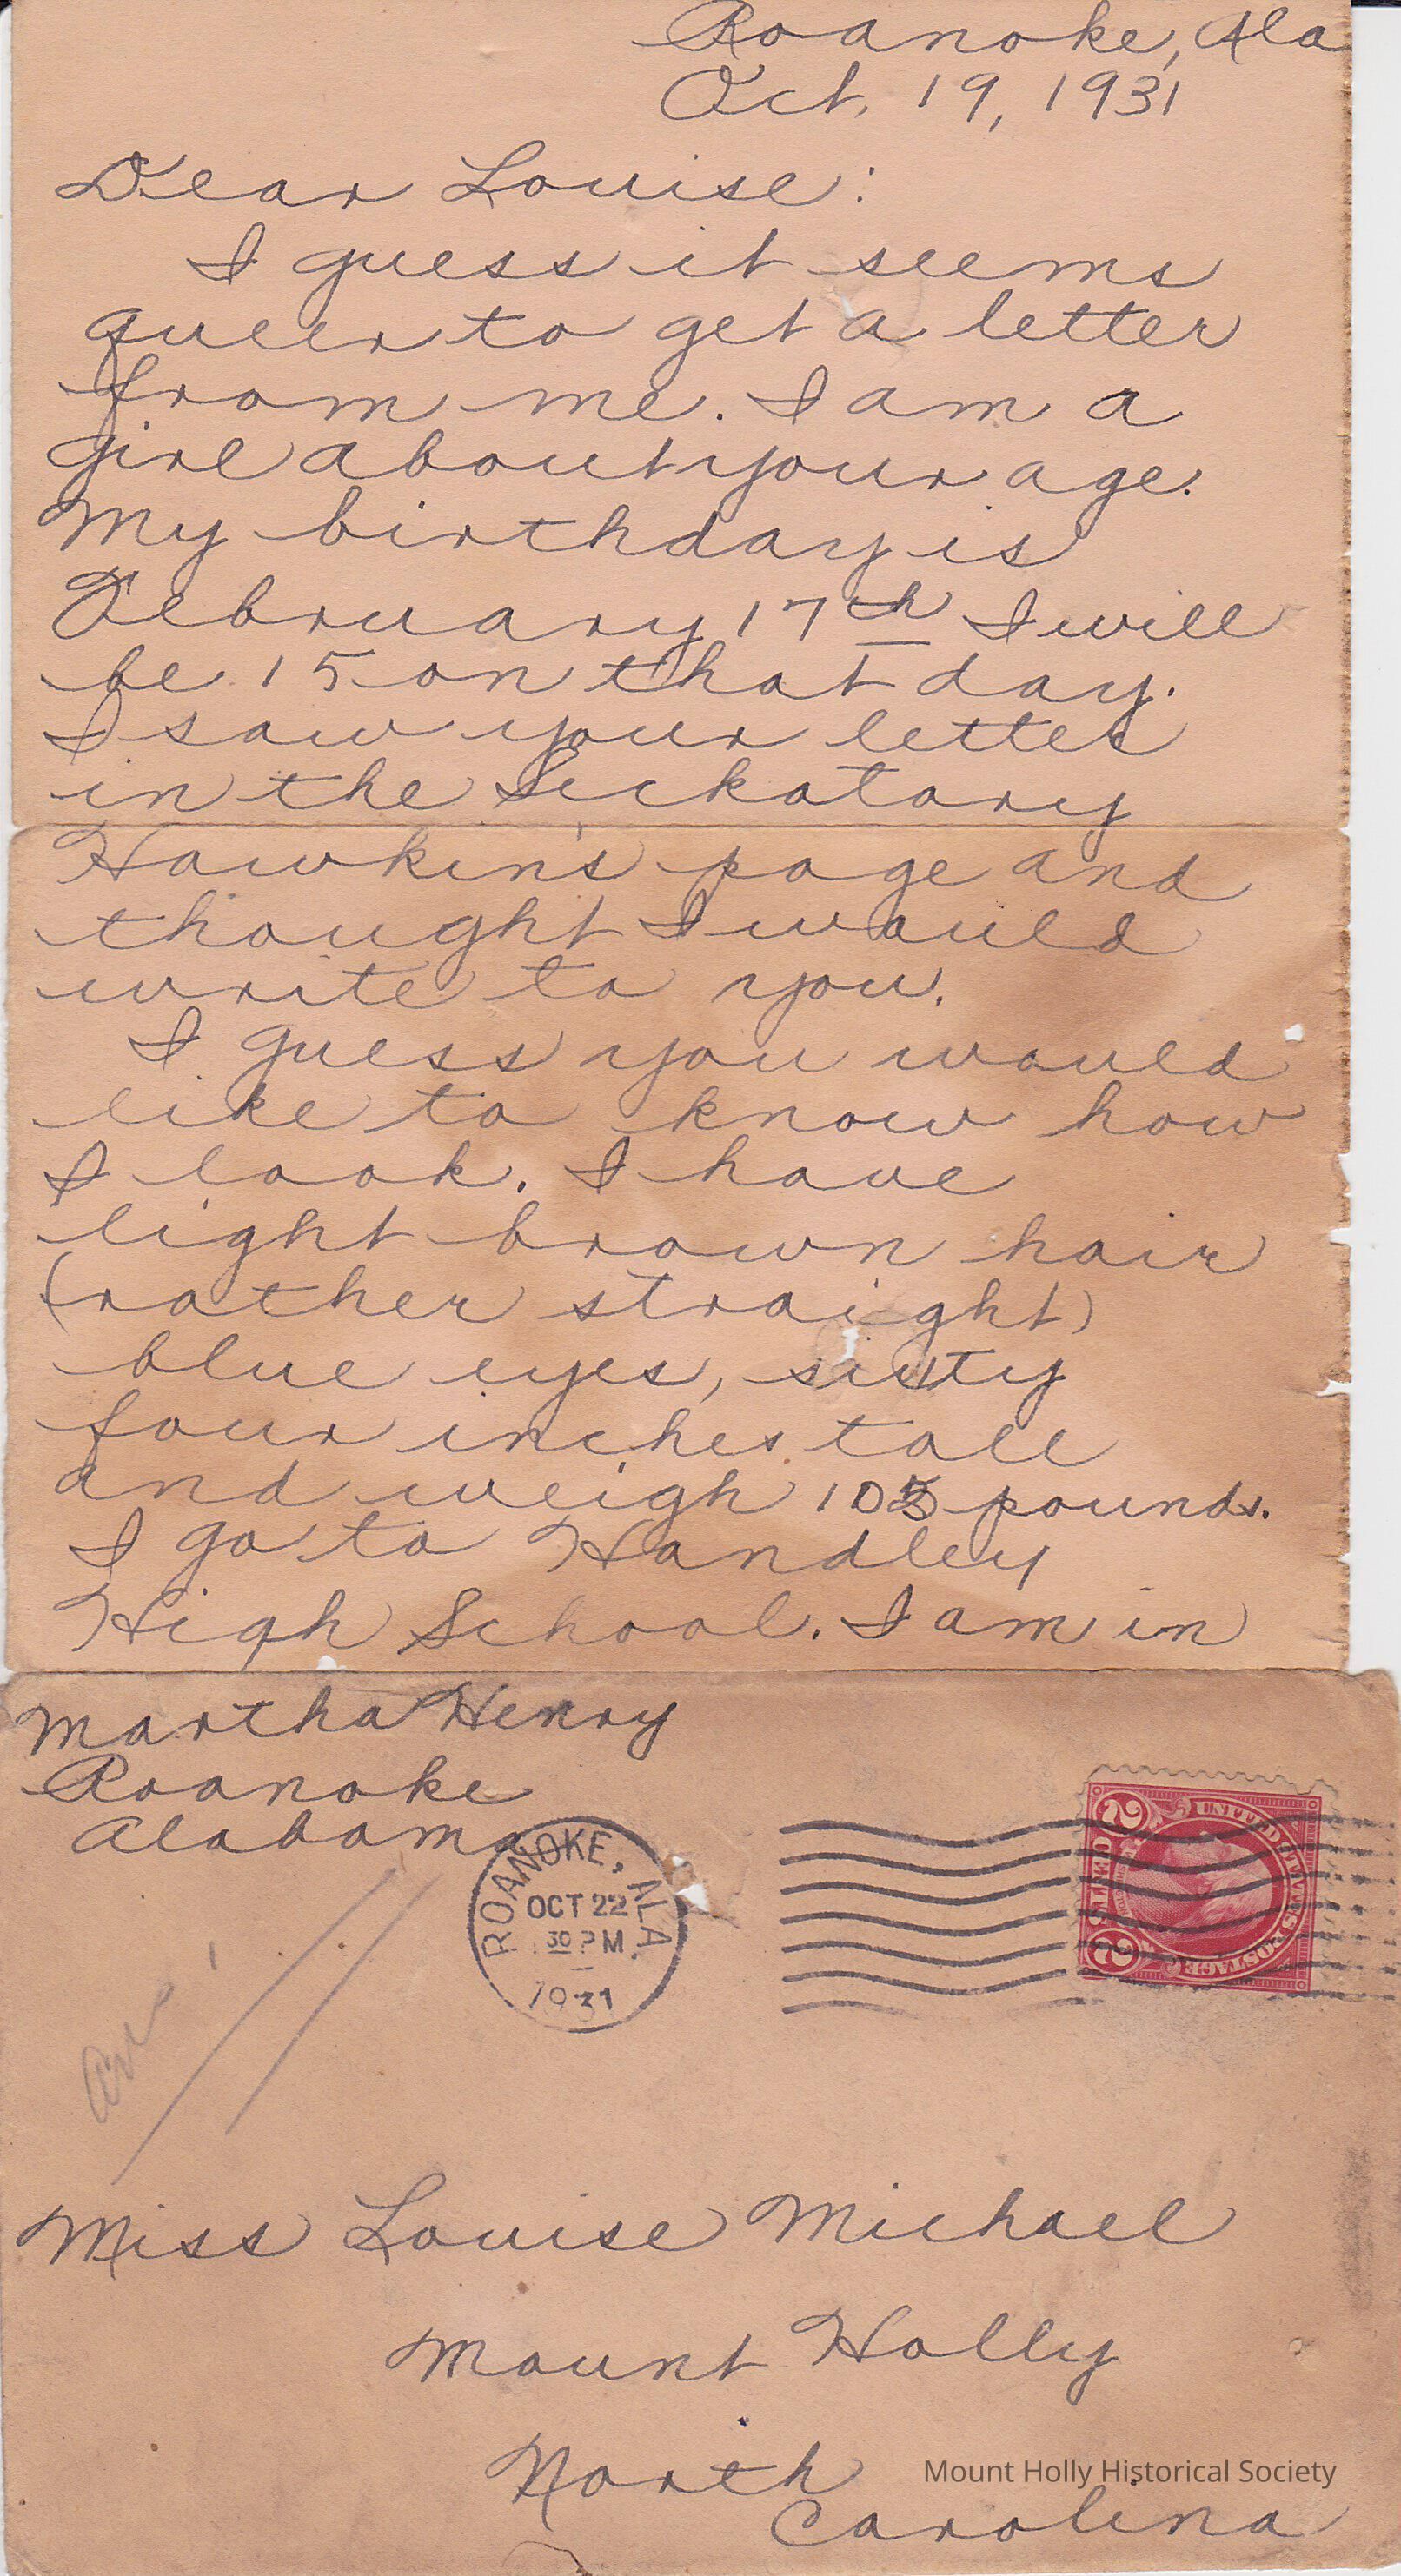 Roanoke, Ala
Oct. 19, 1931
Dear Louise:
I guess it seems
queer to get a letter
from me. I am a
girl about your age.
My birthday is
February 17th I will
be 15 on that day.
I saw your letter
in the Seckatary
Hawkin's page and
thought I would
write to you.
I guess you would
like to know how
I look. I have
light brown hair
(rather straight)
blue eyes, sixty
four inches tall
and weigh 105 pounds.
I go to Handley
High School. I am in
Martha Henry
Roanoke
Alabama
ROANOKE, ALA.
OCT 22
30 PM
1931
UNITED STATES POSTAGE
2 CENTS 2
Miss Louise Michael
Mount Holly
North
Carolina
Mount Holly Historical Society